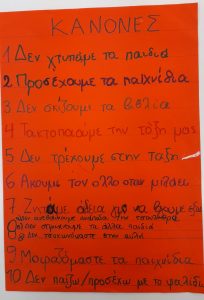 ΚΑΝΟΝΕΣ
1 Δεν χτυπάμε τα παιδιά
2 Προσέχουμε τα παιχνίδια
3 Δεν σκίζουμε τα βιβλία
4 Τακτοποιούμε την τάξη μας
5 Δεν τρέχουμε στην τάξη
6 Ακούμε τον άλλο όταν μιλάει
7 Ζητάμε άδεια για να βγουμε έξω
τα άλλα παιδιά
8 Δεν τσακωνόμαστε στην αυλή
9 Μοιραζόμαστε τα παιχνίδια
10 Δεν παίζω/προσέχω με το ψαλίδι